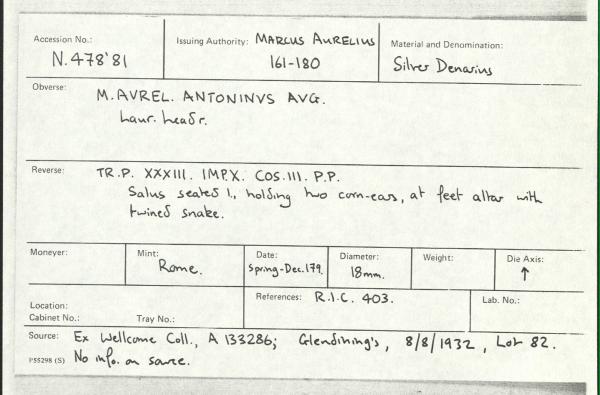 Accession No.: Issuing Authority: MARCUS AURELIUS Material and Denomination:
N.478'81 161-180 Silver Denarius
Obverse: M.AVREL. ANTONINVS AVG.
Laur. head r.
Reverse: TR.P. XXXIII. IMP.X. COS.III. P.P.
Salus seated l., holding two corn-ears, at feet altar with
twined snake.
Moneyer: Mint: Date: Diameter: Weight: Die Axis:
Rome. Spring-Dec.179. 18mm. ↑
Location: References: R.I.C. 403. Lab. No.:
Cabinet No.: Tray No.:
Source: Ex Wellcome Coll., A 133286; Glendining's, 8/8/1932, Lot 82.
P55298 (S) No info. on source.